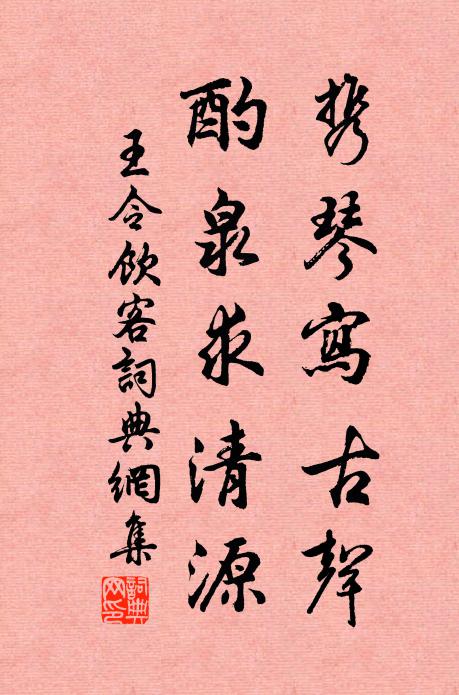 携琴寫古聲
酌泉求清源
王令飲客詞典網集
詞典網印